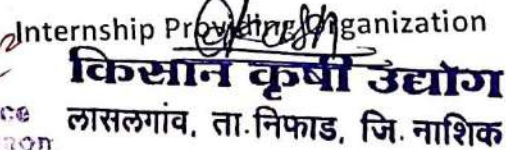 Internship Providing Organization
किसान कृषी उद्योग
लासलगांव, ता.निफाड, जि. नाशिक